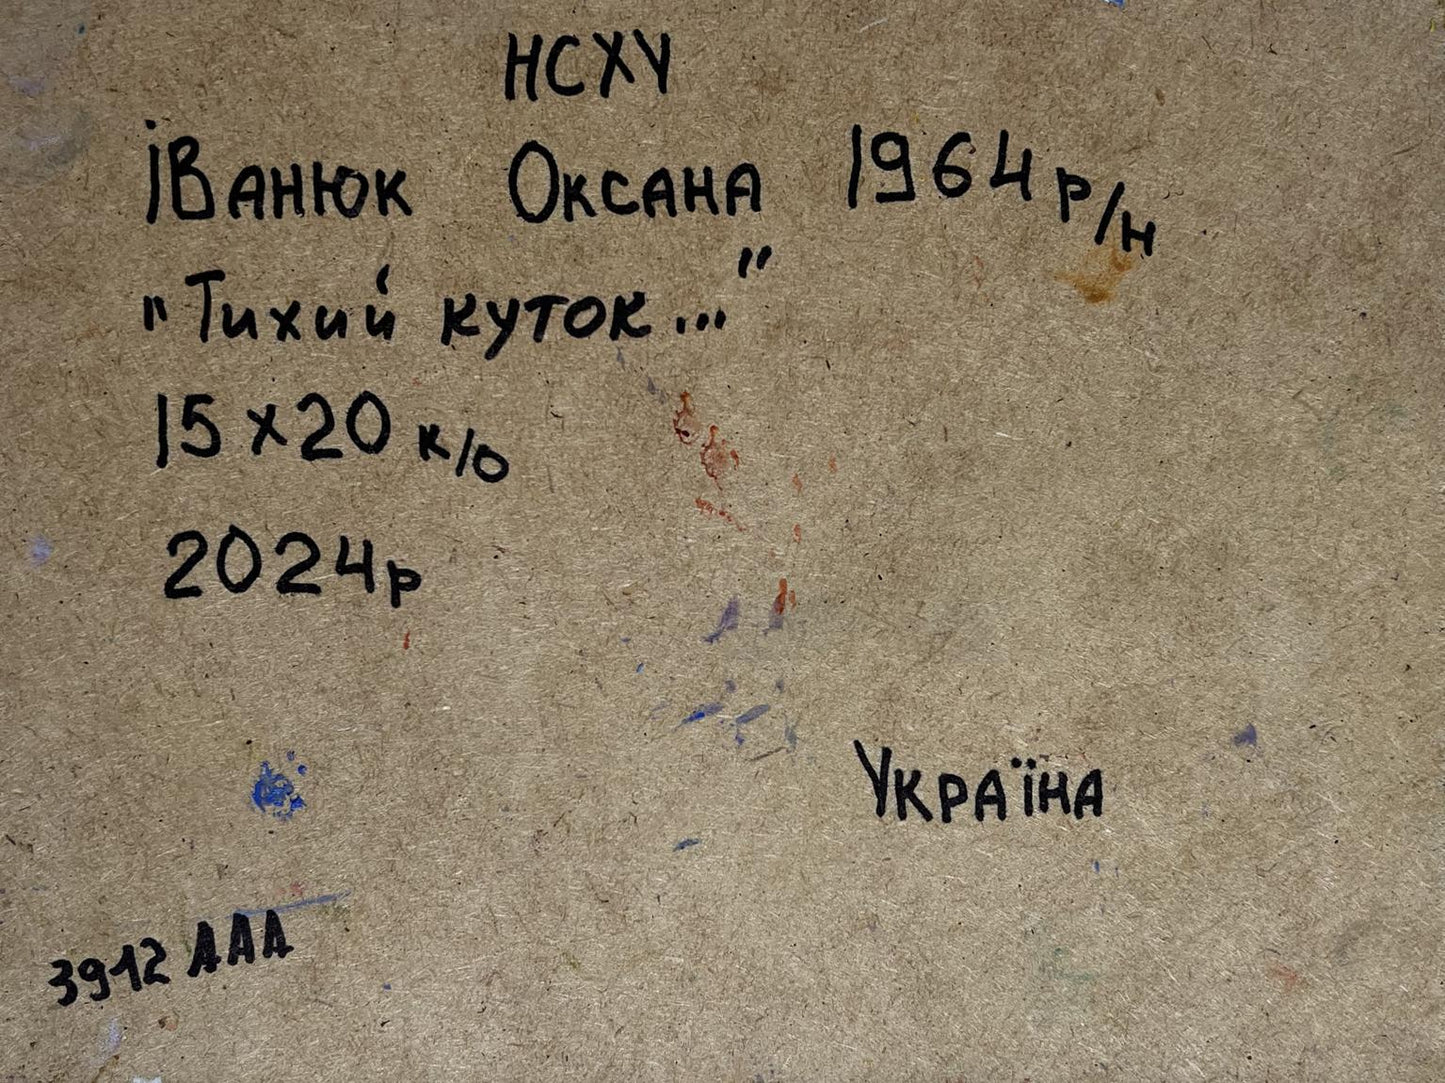 НСХУ
Іванюк Оксана 1964 р/н
"Тихий куток..."
15х20 к/о
2024р
Україна
3912 ААА